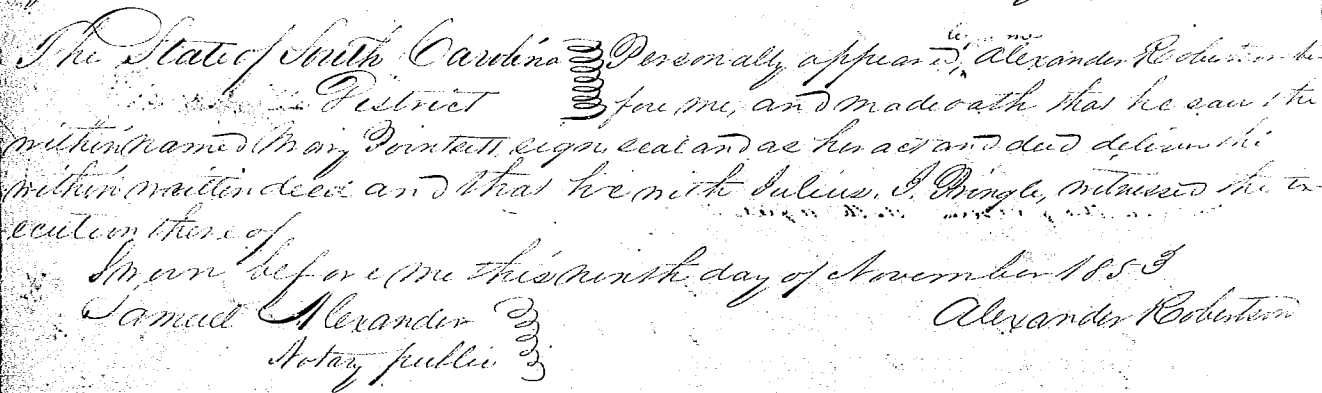 The State of South Carolina } Personally appeared, Alexander Robertson be-
District } fore me, and made oath that he saw the
within named Mary Poinsett sign seal and as her act and deed deliver the
within written deed and that he with Julius. I. Pringle, witnessed the ex-
ecution there of
Sworn before me this ninth day of November 1853
Samuel Alexander } Alexander Robertson
Notary public